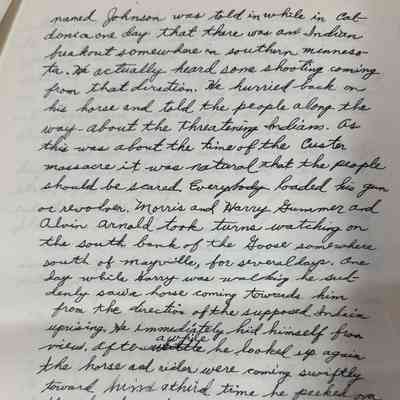 named Johnson was told in while in Cat-
donia one day that there was an Indian
freakout somewhere in southern minneso-
ta. He actually heard some shooting coming
from that direction. He hurried back on
his horse and told the people along the
way about the threatening Indians. As
this was about the time of the Custer
massacre it was natural that the people
should be scared. Everybody loaded his gun
or revolver. Morris and Harry Gummer and
Alvin Arnold took turns watching on
the south bank of the Goose somewhere
south of mayville, for several days. One
day while Harry was walking he sud-
denly saw a horse coming towards him
from the direction of the supposed Indian
uprising. He immediately hid himself from
view. After awhile he looked up again
the horse and rider were coming swiftly
toward him a third time he peeked